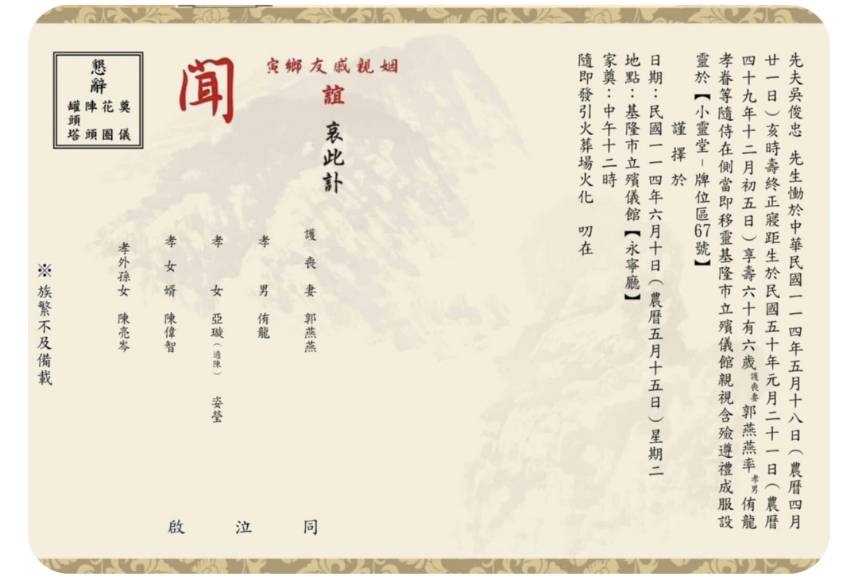 先夫吳俊忠 先生慟於中華民國一一四年五月十八日(農曆四月
廿一日)亥時壽終正寢距生於民國五十年元月二十一日(農曆
四十九年十二月初五日)享壽六十有六歲護喪妻郭燕燕率孝男侑龍
孝眷等隨侍在側當即移靈基隆市立殯儀館親視含殮遵禮成服設
靈於【小靈堂-牌位區67號】
謹擇於
日期:民國一一四年六月十日(農曆五月十五日)星期二
地點:基隆市立殯儀館【永寧廳】
家奠:中午十二時
隨即發引火葬場火化 叨在
姻親戚友鄉寅
誼
哀此訃
聞
護喪妻 郭燕燕
孝男 侑龍
孝女 亞璇(適陳) 姿瑩
孝女婿 陳偉智
孝外孫女 陳亮岑
同泣啟
懇辭
奠儀
花圈
陣頭
罐頭塔
※族繁不及備載